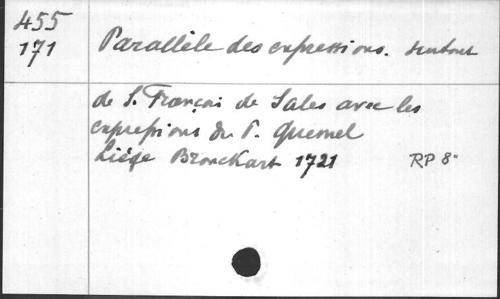 455
171
Parallèle des expressions. surtout
de S. François de Sales avec les
expressions du P. Quesnel
Liége Bronckart 1721 RP 8°